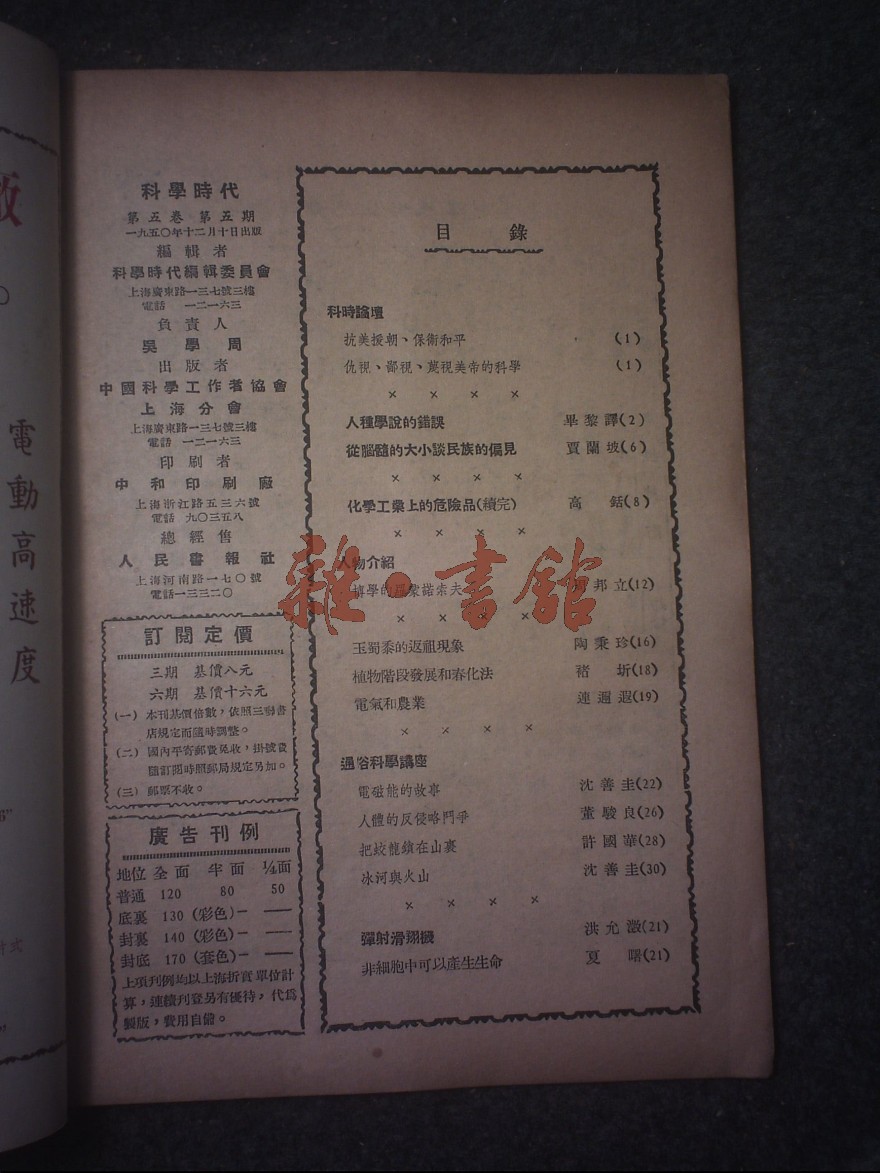 科學時代
第五卷 第五期
一九五〇年十二月十日出版
編輯者
科學時代編輯委員會
上海廣東路一三七號三樓
電話 一二一六三
負責人
吳學周
出版者
中國科學工作者協會
上海分會
上海廣東路一三七號三樓
電話 一二一六三
印刷者
中和印刷廠
上海浙江路五三六號
電話 九〇三五八
總經售
人民書報社
上海河南路一七〇號
電話一三三二〇
訂閱定價
三期 基價八元
六期 基價十六元
(一) 本刊基價倍數，依照三聯書
店規定而隨時調整。
(二) 國內平寄郵費免收，掛號費
隨訂閱時照郵局規定另加。
(三) 郵票不收。
廣告刊例
地位 全面 半面 ¼面
普通 120 80 50
底裏 130 (彩色)— ——
封裏 140 (彩色)— ——
封底 170 (套色)— ——
上項刊例均以上海折實單位計
算，連續刊登另有優待，代爲
製版，費用自備。
目錄
科時論壇
抗美援朝、保衛和平 (1)
仇視、鄙視、蔑視美帝的科學 (1)
× × × ×
人種學說的錯誤 畢黎譯(2)
從腦髓的大小談民族的偏見 賈蘭坡(6)
× × × ×
化學工業上的危險品(續完) 高銛(8)
× × × ×
人物介紹
博學的羅蒙諾索夫 周邦立(12)
× × × ×
玉蜀黍的返祖現象 陶秉珍(16)
植物階段發展和春化法 褚圻(18)
電氣和農業 連遐(19)
× × × ×
通俗科學講座
電磁能的故事 沈善圭(22)
人體的反侵略鬥爭 董駿良(26)
把蛟龍鎖在山裏 許國華(28)
冰河與火山 沈善圭(30)
× × × ×
彈射滑翔機 洪允澂(21)
非細胞中可以產生生命 夏曙(21)
雜·書館
電動高速度